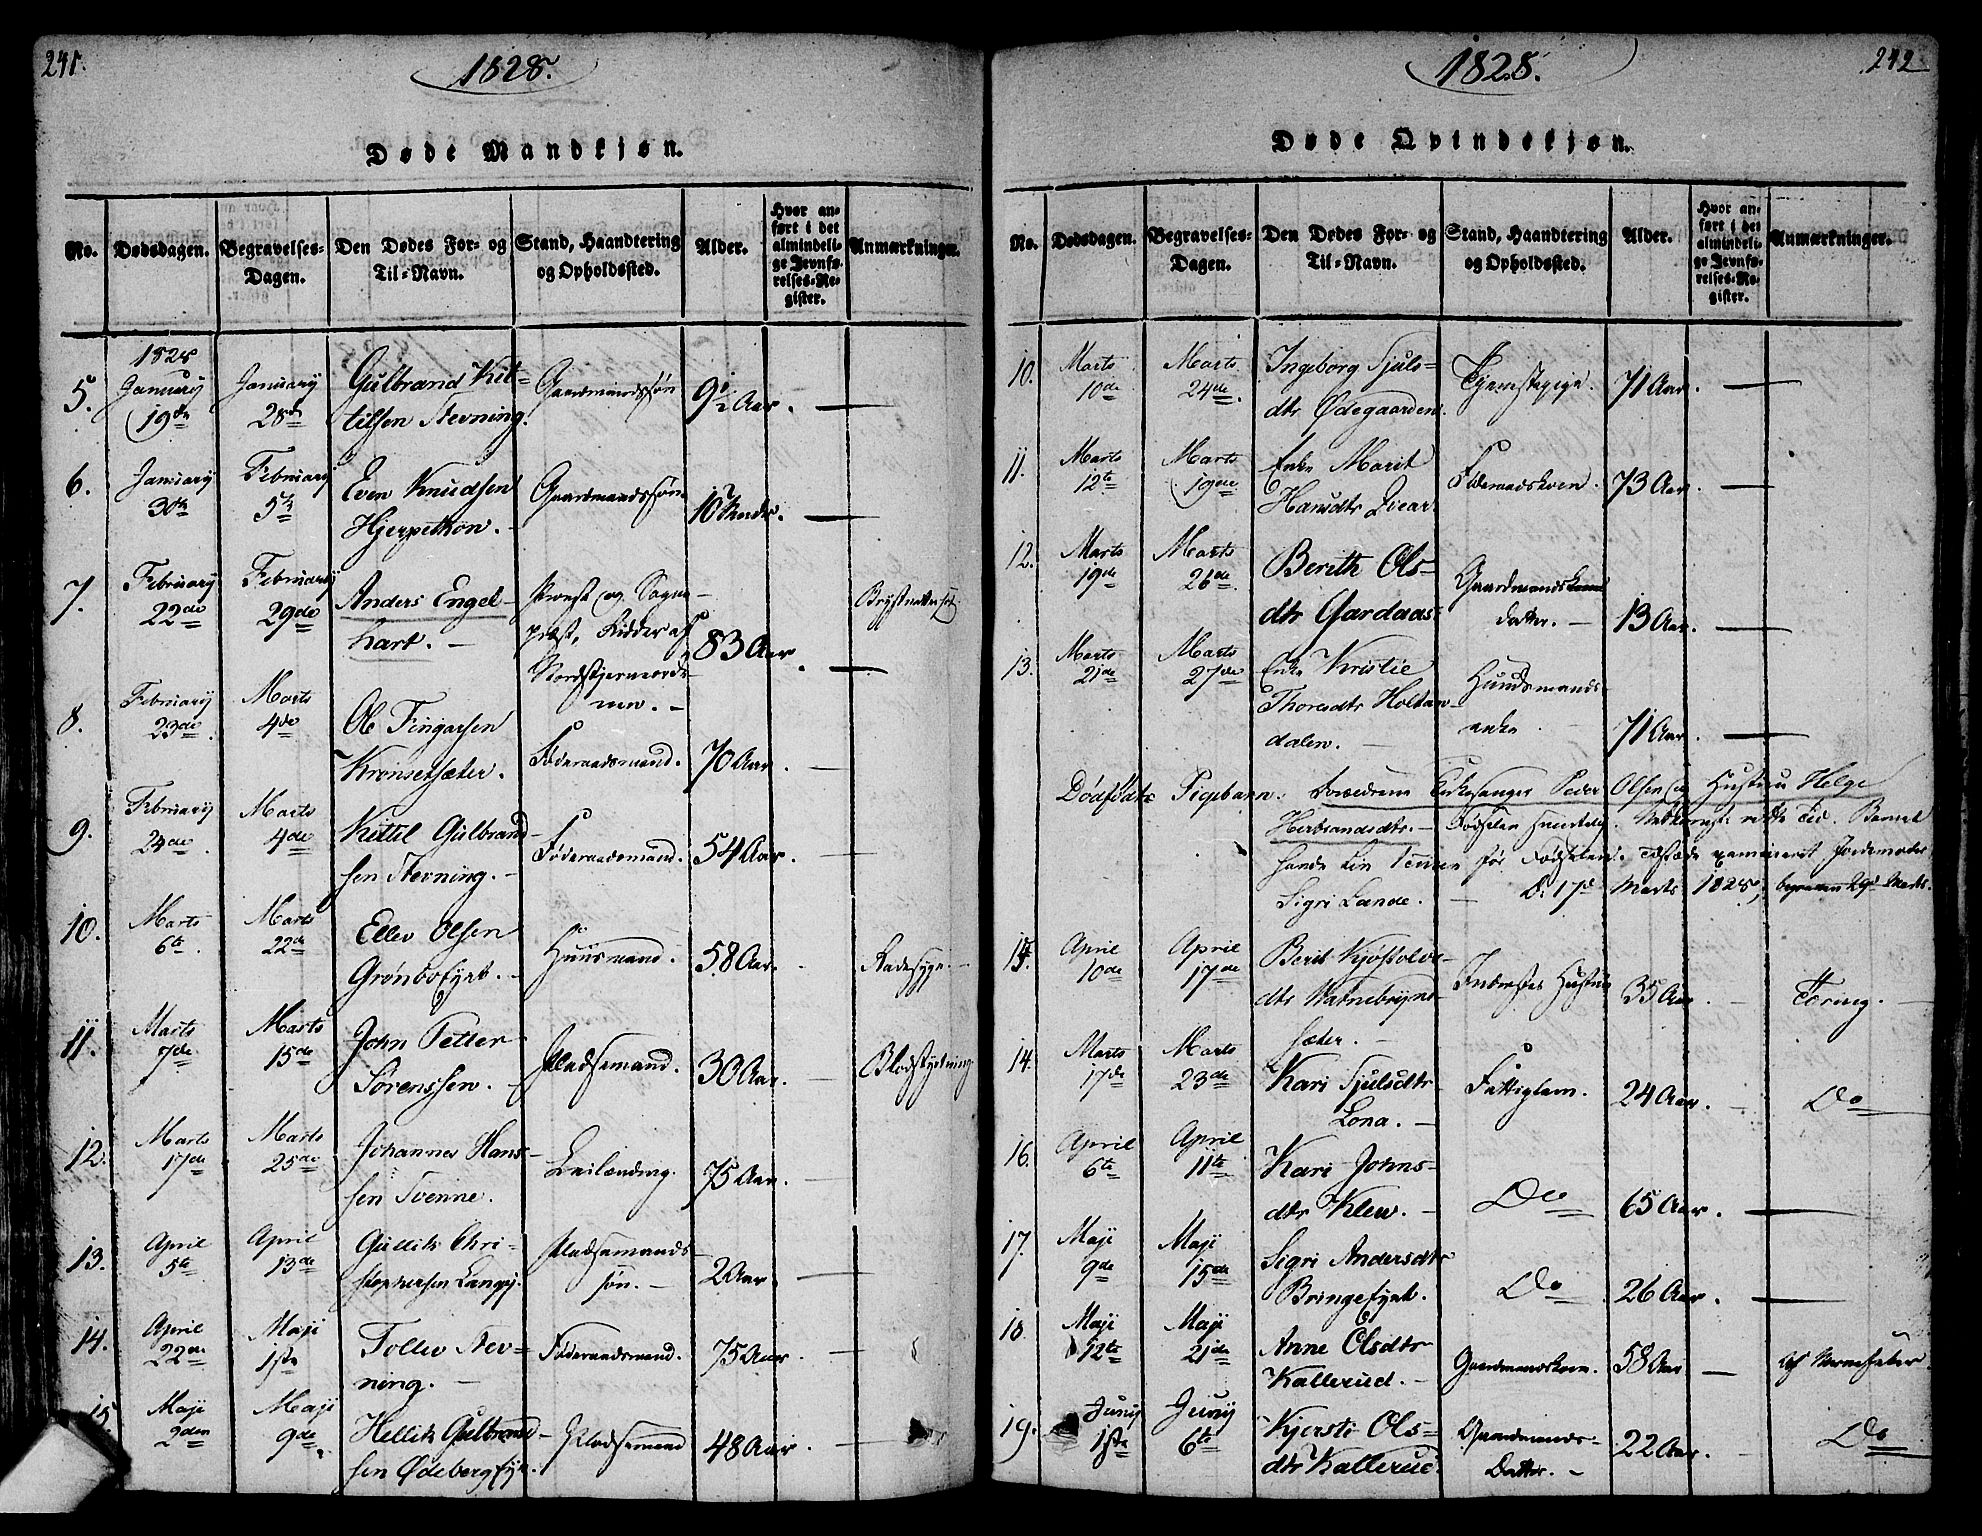 241.
1828.
Døde Mandkjøn.
No.
Dødsdagen.
Begravelses-
Dagen.
Den Dødes For- og
Til-Navn.
Stand, Haandtering
og Opholdssted.
Alder.
Hvor an-
ført i det
almindeli-
ge Jevnfø-
relses-Re-
gister.
Anmærkninger.
1828
5. Januarij 19de Januarij 28de Gulbrand Kit-
tilsen Nevning. Gaardmandssøn 9½ Aar. —
6. Januarij 30te February 5te Even Knudsen
Hjerpetkon. — Gaardmandssøn 10 —
7. February 22de February 29de Anders Engel-
hart. — Provst og Sogne-
præst, Ridder af
Nordstjerneorde-
nen. — 83 Aar. —
8. February 23de Marts 4de Ole Fingarsen
Kronsetsæter. Føderaadsmand. 70 Aar. —
9. February 24de Marts 4de Kittil Gulbrand-
sen Nevning. — Føderaadsmand. 54 Aar. —
10. Marts 6te Marts 22de Ellev Olsen
Grønboejet. — Huusmand. 58 Aar. — Radesyge. —
11. Marts 7de Marts 15de John Petter
Sørenssen. — Pladsemand. 30 Aar. — Blodstyrtning
12. Marts 17de Marts 25de Johannes Hans-
sen Tvenne. Leilænding. 75 Aar. —
13. April 5te April 13de Gullik Chri-
stophersen Pladsemands-
søn. — 2 Aar. —
14. April 22de Maji 1ste Tollev Nev-
ning. — Føderaadsmand. 75 Aar —
15. Maji 2den Maji 9de Hellik Gulbrand-
sen Pladsemand 48 Aar. —
242
1828.
Døde Qvindekjøn.
No.
Dødsdagen.
Begravelses-
Dagen.
Den Dødes For- og
Til-Navn.
Stand, Haandtering
og Opholdssted.
Alder.
Hvor an-
ført i det
almindeli-
ge Jevnfø-
relses-Re-
gister.
Anmærkninger.
10. Marts 10de Marts 24de Ingeborg Sjuls-
dtr Ødegaarden. Tjenstepige. 71 Aar. —
11. Marts 12te Marts 19de Enke Marit
Hansdtr Føderaadskone. 73 Aar. —
12. Marts 19de Marts 26de Berith Ols-
dtr Gardaas. Gaardmands
datter. — 13 Aar. —
13. Marts 21de Marts 27de Enke Kristie
Thorsdtr Holtan-
dalen. — Huusmands-
enke 71 Aar. —
Dødfødte Pigebarn: Forældrene Kirkesanger Peder Olsen og Hustru Helge
Herbrandsdtr. — Fødselen rette Tid. Barnet
før Fødselen. examineret Jordemoder
Sigri Lande. — D: 17de Marts 1828, begraven 29de Marts.
15. April 10de April 17de Berit Kjøstolvs-
dtr Vatnebryns-
sæter. — Inderstes Hustru 35 Aar. — Tæring. —
14. Marts 17de Marts 23de Kari Sjulsdtr
Lona. — Fattiglem. 24 Aar. — Do
16. April 6te April 11te Kari Johns-
dtr Klev. — Do 65 Aar. —
17. Maji 9de Maji 15de Sigri Andersdtr
Do 26 Aar. —
18. Maji 12te Maji 21de Anne Olsdtr
Kallerud. — Gaardmandskone. 58 Aar — Af Nervefeber
19. Juny 1ste Juny 6te Kjersti Ols-
dtr Kallerud. Gaardmands-
Datter. — 22 Aar. — Do